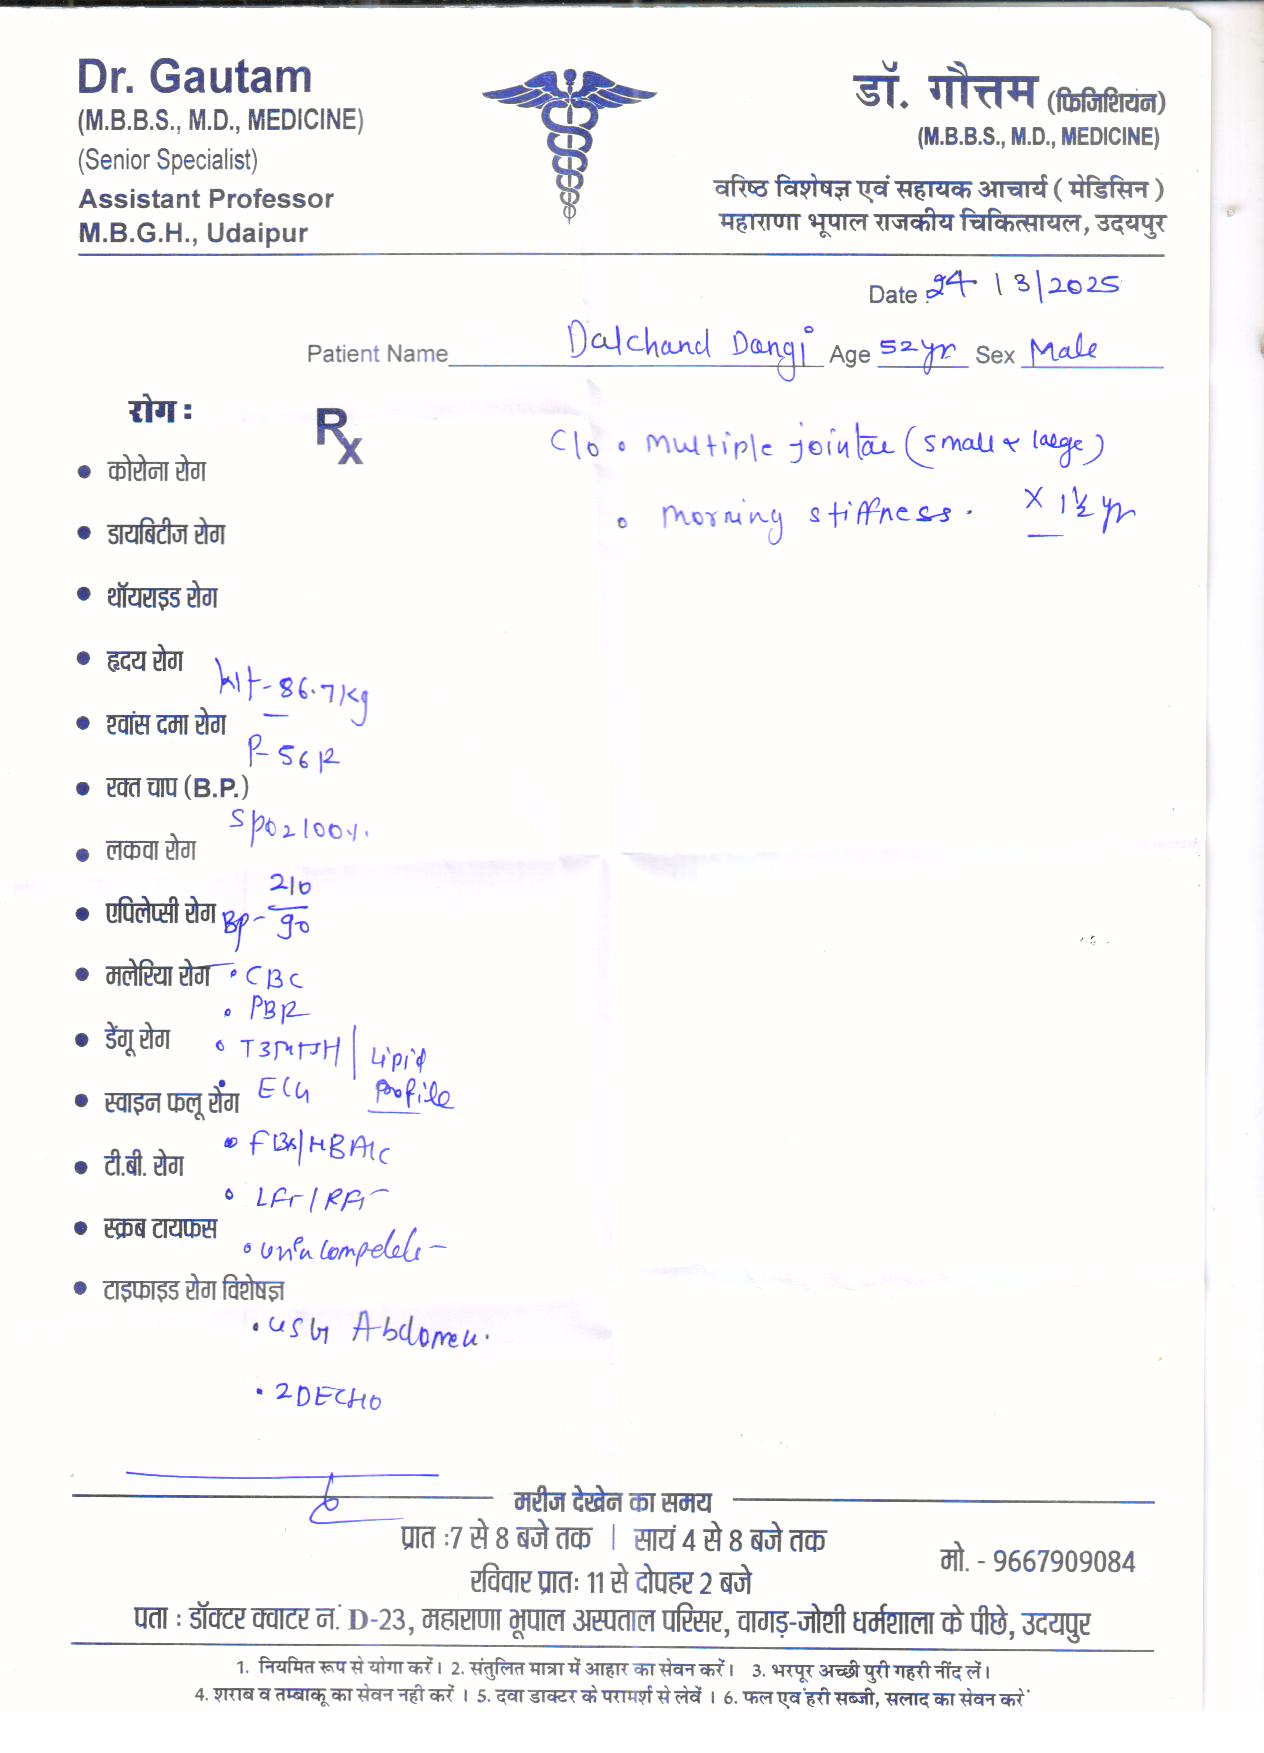 Dr. Gautam
(M.B.B.S., M.D., MEDICINE)
(Senior Specialist)
Assistant Professor
M.B.G.H., Udaipur
डॉ. गौत्तम (फिजिशियन)
(M.B.B.S., M.D., MEDICINE)
वरिष्ठ विशेषज्ञ एवं सहायक आचार्य ( मेडिसिन )
महाराणा भूपाल राजकीय चिकित्सायल, उदयपुर
Date : 24 | 3 | 2025
Patient Name Dalchand Dangi Age 52yr Sex Male
रोग :
Rx
C/o • Multiple joint (small & large)
• Morning stiffness. X 1½ yr
• कोरोना रोग
• डायबिटीज रोग
• थॉयराइड रोग
• हृदय रोग
Wt - 86.7 kg
• श्वांस दमा रोग
P- 56
• रक्त चाप (B.P.)
SpO2 100%.
• लकवा रोग
• एपिलेप्सी रोग
BP- 210/90
• मलेरिया रोग
• CBC
• PBR
• डेंगू रोग
• T3T4TSH | Lipid Profile
• स्वाइन फलू रोग
• ECG
• FBS/HBA1C
• टी.बी. रोग
• LFT / RFT
• स्क्रब टायफस
• urin compelete
• टाइफाइड रोग विशेषज्ञ
• USG Abdomen.
• 2DECHO
मरीज देखेन का समय
प्रात :7 से 8 बजे तक | सायं 4 से 8 बजे तक
रविवार प्रातः 11 से दोपहर 2 बजे
मो. - 9667909084
पता : डॉक्टर क्वाटर नं. D-23, महाराणा भूपाल अस्पताल परिसर, वागड़-जोशी धर्मशाला के पीछे, उदयपुर
1. नियमित रूप से योगा करें। 2. संतुलित मात्रा में आहार का सेवन करें। 3. भरपूर अच्छी पुरी गहरी नींद लें।
4. शराब व तम्बाकू का सेवन नही करें । 5. दवा डाक्टर के परामर्श से लेवें । 6. फल एवं हरी सब्जी, सलाद का सेवन करें